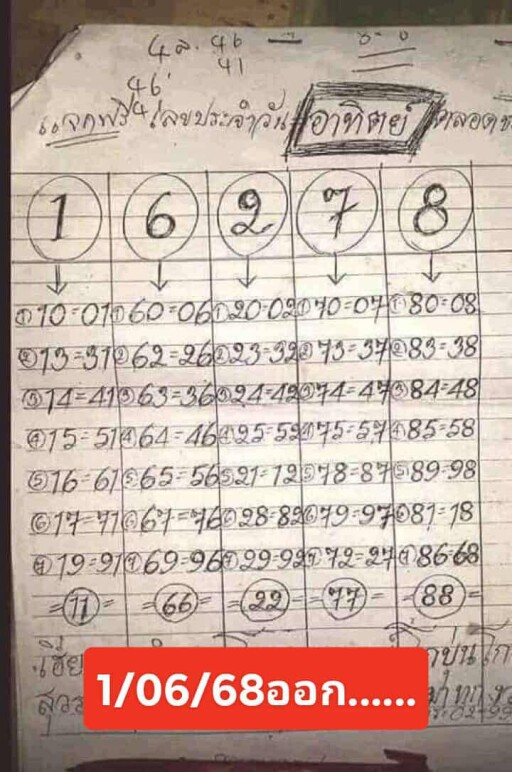 46
41
46
แจกฟรี เลขประจำวัน อาทิตย์ ตลอด
1 6 2 7 8
① 10=01 ① 60=06 ① 20=02 ① 70=07 ① 80=08
② 13=31 ② 62=26 ② 23=32 ② 73=37 ② 83=38
③ 14=41 ③ 63=36 ③ 24=42 ③ 74=47 ③ 84=48
④ 15=51 ④ 64=46 ④ 25=52 ④ 75=57 ④ 85=58
⑤ 16=61 ⑤ 65=56 ⑤ 21=12 ⑤ 78=87 ⑤ 89=98
⑥ 17=71 ⑥ 67=76 ⑥ 28=82 ⑥ 79=97 ⑥ 81=18
⑦ 19=91 ⑦ 69=96 ⑦ 29=92 ⑦ 72=27 ⑦ 86=68
=11= =66= =22= =77= =88=
1/06/68ออก......